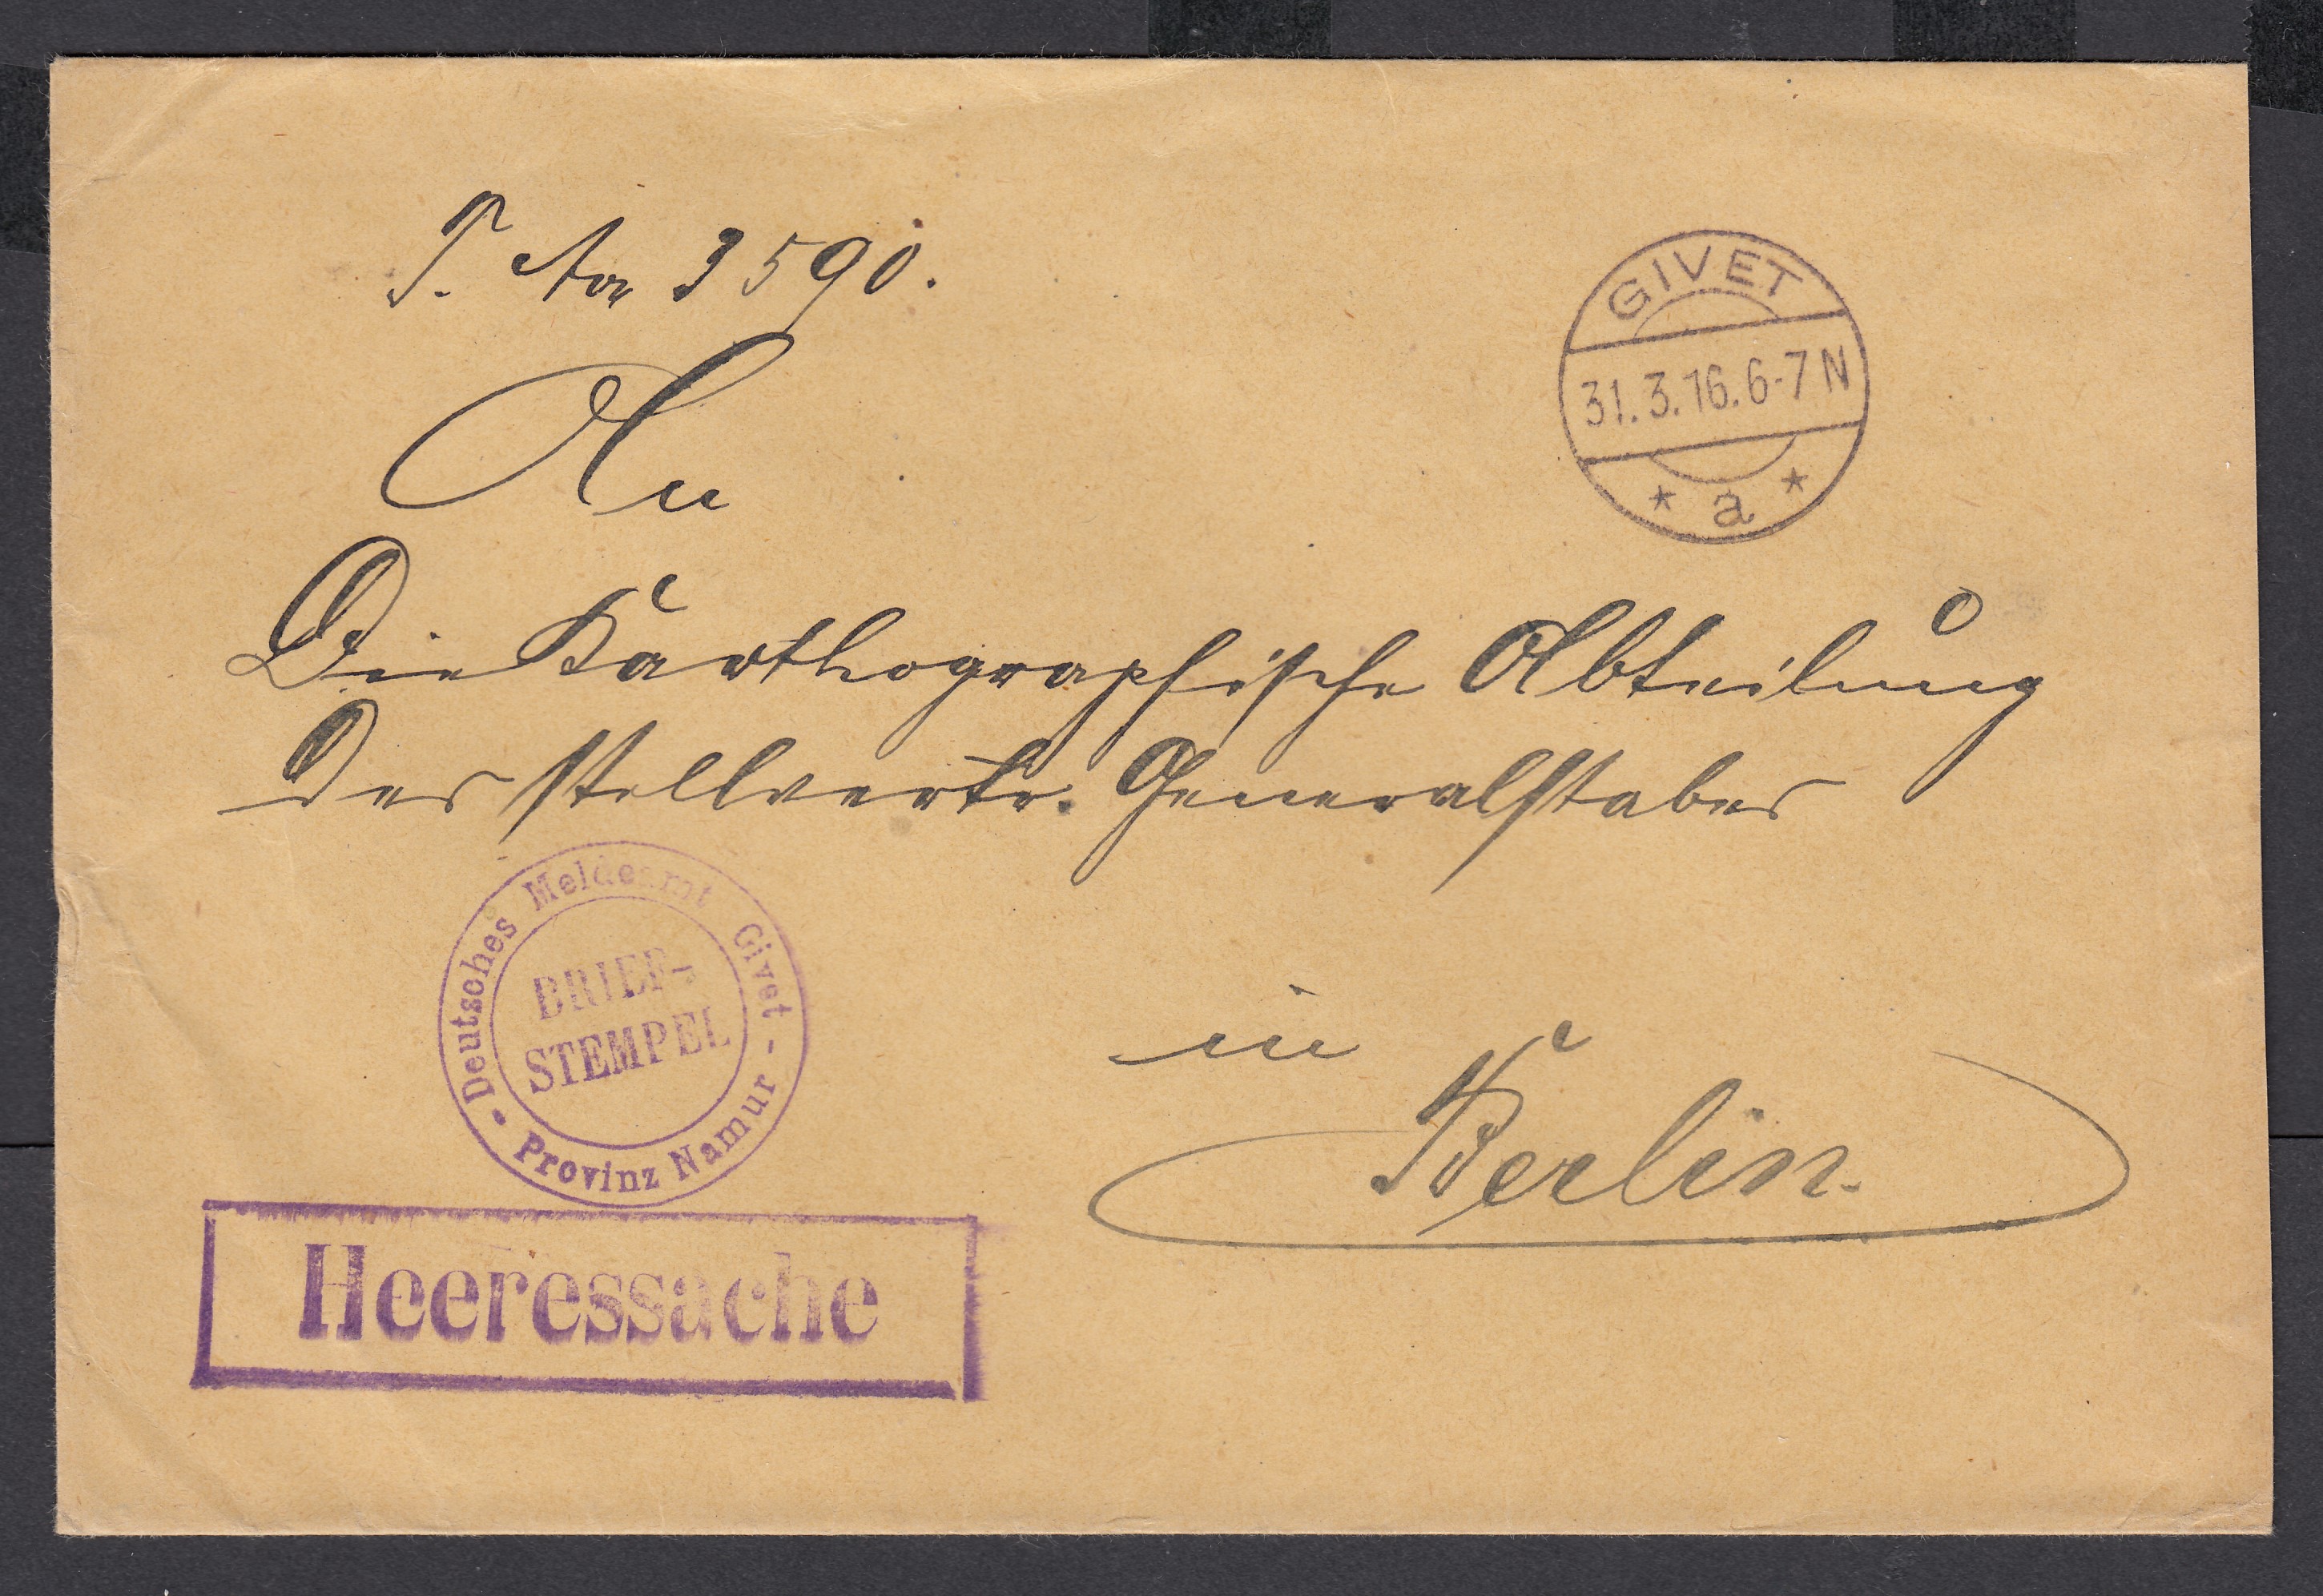 J. No 3590.
GIVET
31.3.16.6-7N
* a *
An
Die Karthographische Abteilung
Des stellvertr. Generalstabes
Deutsches Meldeamt Givet - Provinz Namur
BRIEF-
STEMPEL
in
Berlin.
Heeressache